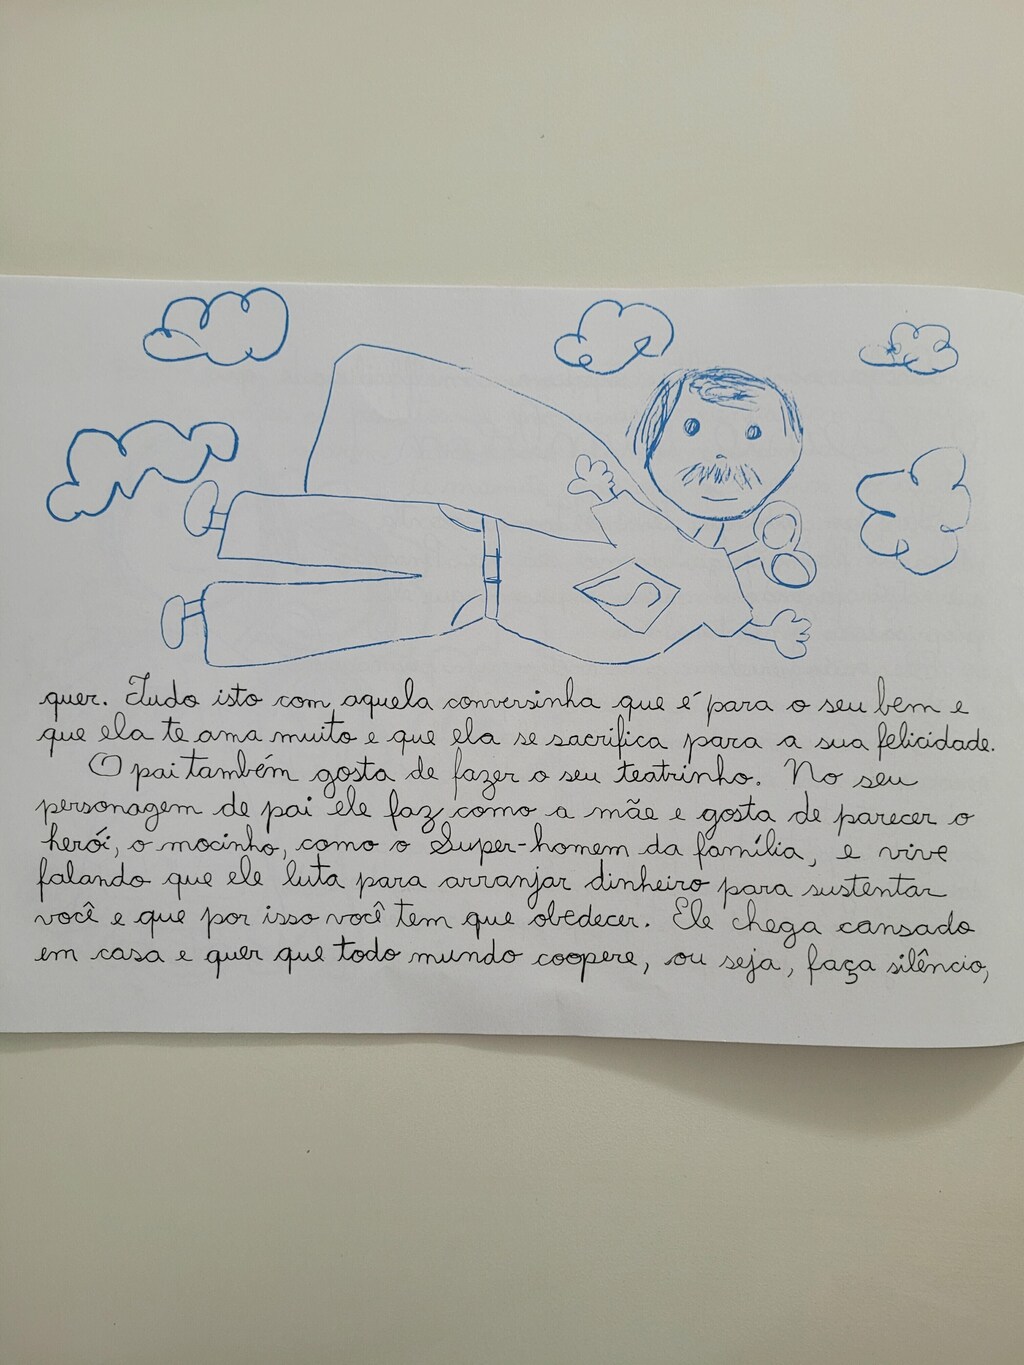 S
quer. Tudo isto com aquela conversinha que é para o seu bem e
que ela te ama muito e que ela se sacrifica para a sua felicidade.
O pai também gosta de fazer o seu teatrinho. No seu
personagem de pai ele faz como a mãe e gosta de parecer o
herói, o mocinho, como o Super-homem da família, e vive
falando que ele luta para arranjar dinheiro para sustentar
você e que por isso você tem que obedecer. Ele chega cansado
em casa e quer que todo mundo coopere, ou seja, faça silêncio,